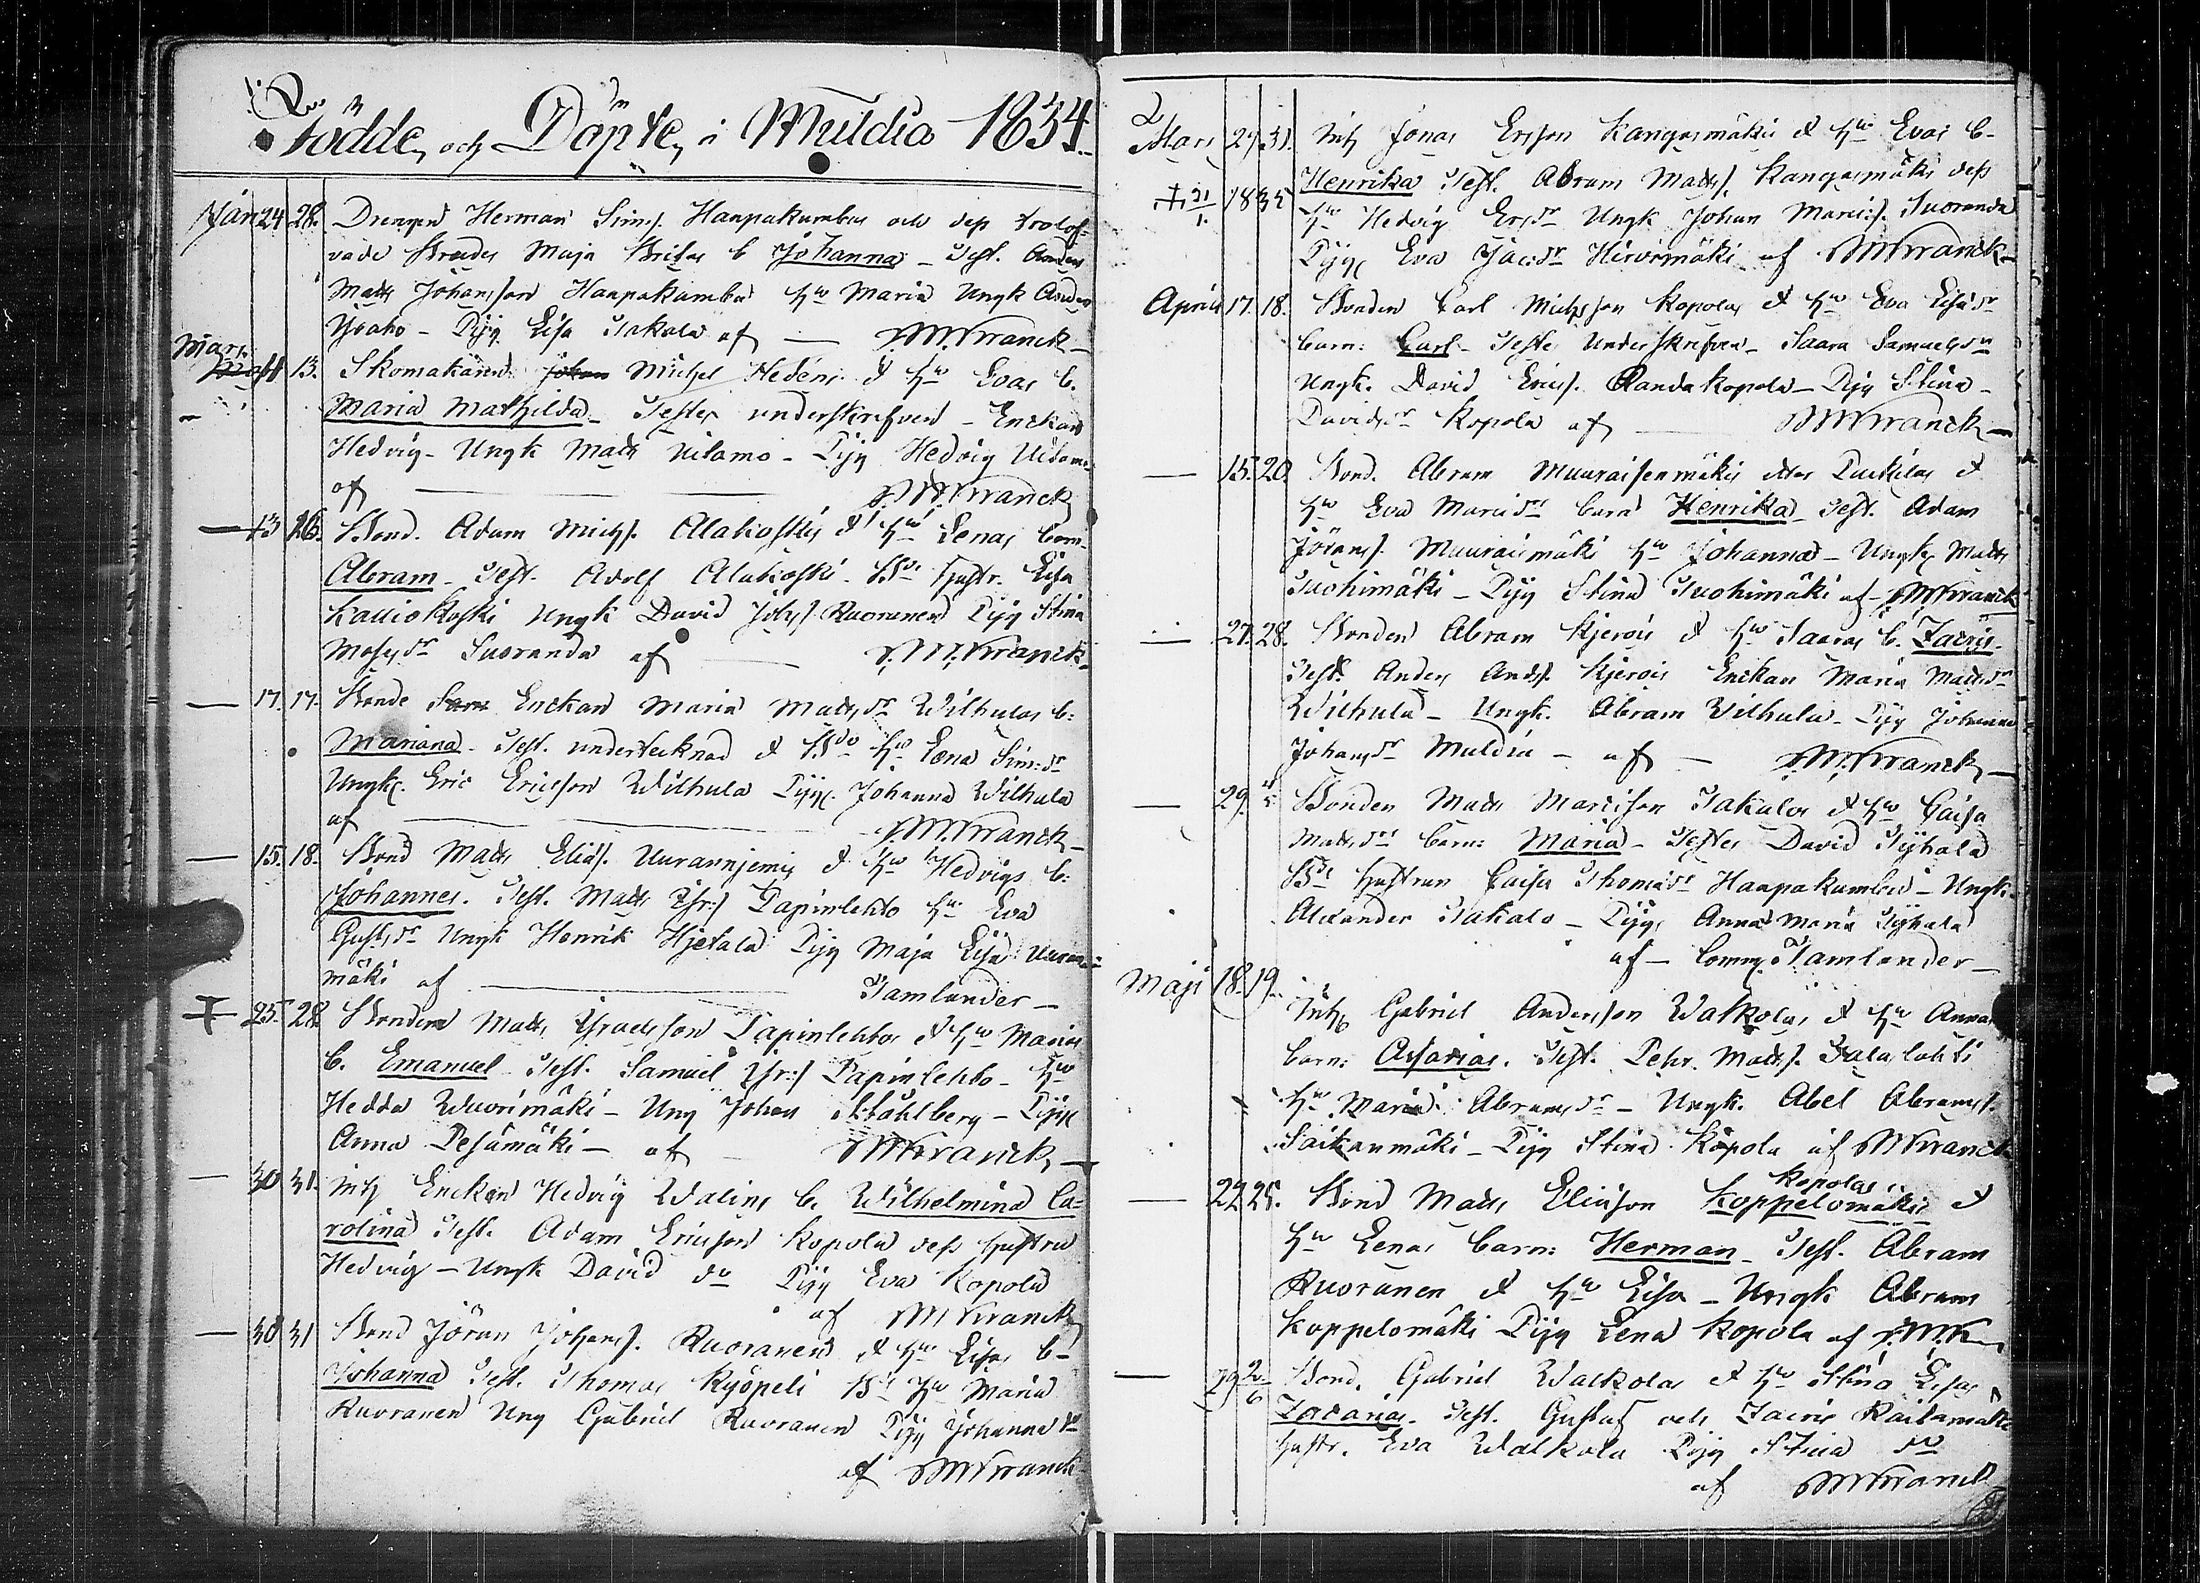 Födde och Döpte i Muldia 1834
Jan 24 28. Drengen Herman Sims. Haapakumbus och dess trolof-
vade Maja b. Johanna - Test.
Matts Johansson Haapakumbu hu Maria Ungk
- Pig. Lisa Takala af — M. Franck
Mars 11 13. Skomakaren Michel Hedens & hu Evas b.
Maria Mathilda - Testes underskrifven - Enckan
Hedvig - Ungk Matts - Pig Hedvig
af — M. Franck
— 13 16. Bond. Adam Michs. Alakoskis & hu Lenas barn
Abram - Test. Adolf Alakoski - Bds hustr. Lisa
Kalliokoski Ungk David Johs. Ruoranen Pig Stina
Mosesdr Suoranda af — M. Franck
— 17. 17. Bonde Enckan Maria Mattsdr Wilhulas b.
Mariana - Test. undertecknad & Bds hu Lena Simsdr
Ungk. Eric Ericsson Wilhula Pig. Johanna Wilhula
af — M. Franck
— 15. 18. Bond Matts Elias. & hu Hedvigs b.
Johannes. Test. Matts Isr:s Papinlehto hu Eva
Gustsdr Ungk Henrik Hjetala Pig Maja Lisa
mäki af — Tamlander
25. 28. Bonden Matts Israelsson Papinlehtos & hu Marias
b. Emanuel - Test. Samuel Isr:s Papinlehto - hu
Hedda Wuorimäki - Ung Johan Ståhlberg - Pig
Anna Pesämäki - af M. Franck
— 30 31. Inh Enckan Hedvig Walins b. Wilhelmina Ca-
rolina Test. Adam Ericsson Kopola dess hustru
Hedvig - Ungk David do Pig Eva Kopola
af M. Franck
— 30 31 Bond Jöran Johans. Ruoranens & hu Lisas b-
Johanna Test. Thomas Kyöpeli Bds hu Maria
Ruoranen Ung Gabriel Ruoranen Pig Johanna do
af M. Franck
2
Mars 29. 31. Inh Jonas Ersson Kangasmäkis & hu Evas b-
Henrika Test. Abram Matts. Kangasmäki dess
+ 21/1. 1835 hu Hedvig Ersdr Ungk Johan Suoranda
Pig. Eva Jac:dr Hirvimäki af M. Franck
April 17. 18. Bonden Carl Michsson Kopolas & hu Eva
barn: Carl - Testes Underskrifven - Saara Samuelsdr
Ungk. David Erics. Kopola - Pig Stina
Davidsdr Kopola af — M. Franck
— 15. 20. Bond. Abram Muuraisenmäkis &
hu Eva barn Henrika - Test. Adam
Jörans. Muuraismäki hu Johanna - Ungk Matts
Tuohimäki - Pig Stina Tuohimäki af M. Franck
— 27. 28. Bonden Abram Kjerois & hu Saaras b. Zacris.
Test. Anders Ands. Kjerois Enckan Maria Mattsdr
Wilhula - Ungk. Abram Wilhula - Pig Johanna
Johansdr Muldia - af - M. Franck
— 29. Bonden Matts Takalas & hu Caisa
Mattsdrs barn: Maria - Testes David Tyhala
Bds hustrun Caisa Thomasdr Haapakumbu - Ungk.
Alexander Takala - Pig. Anna Maria Tyhala
af - Comm. Tamlander
Maji 18. 19. Inh. Gabriel Andersson Walkolas & hu Annas
barn: Asarias. Test. Pehr Matts. Salalahti
hu Maria Abramsdr - Ungk. Abel Abrams.
Saikanmäki - Pig Stina Kopola af M. Franck
Kopolas
— 22. 25. Bond Matts Eliasson Koppelomäkis &
hu Lenas barn: Herman - Test. Abram
Ruoranen & hu Lisa - Ungk Abram
Koppelomäki Pig Lena Kopola af M. K
— 29 2/6 Bond. Gabriel Walkolas & hu Stina Lisas
Zacarias. Test. Gustaf och Zacris Raitamäki
hustr. Eva Walkola Pig Stina do
af M. Franck